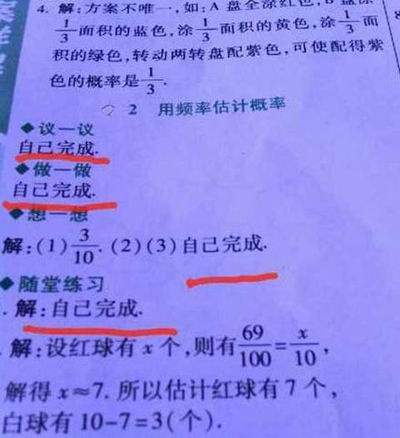 4. 解:方案不唯一,如:A 盘全涂红色,B 盘涂
1/3面积的蓝色,涂1/3面积的黄色,涂1/3面
积的绿色,转动两转盘配紫色,可使配得紫
色的概率是1/3.
2 用频率估计概率
◆议一议
自己完成.
◆做一做
自己完成.
◆想一想
解:(1)3/10. (2)(3)自己完成.
◆随堂练习
. 解:自己完成.
. 解:设红球有 x 个,则有69/100=x/10,
解得 x≈7. 所以估计红球有 7 个,
白球有 10-7=3(个).